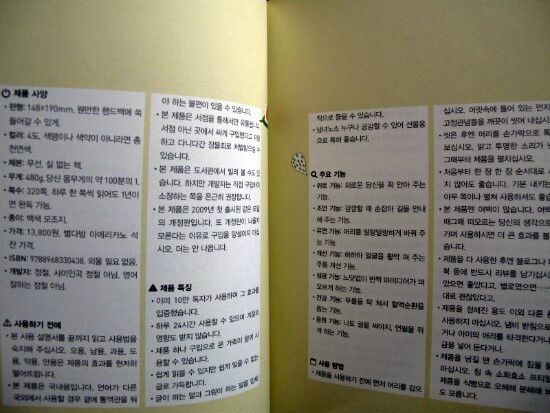 제품 사양
• 판형: 148×190mm. 웬만한 핸드백에 쏙
들어갈 수 있게.
• 컬러: 4도. 색맹이나 색약이 아니라면 총
천연색.
• 제본: 무선. 실 없는 책.
• 무게: 480g. 당신 몸무게의 약 100분의 1.
• 쪽수: 320쪽. 하루 한 쪽씩 읽어도 1년이
면 완독 가능.
• 종이: 백색 모조지.
• 가격: 13,800원. 별다방 아메리카노 석
잔 가격.
• ISBN: 9788968330438. 외울 필요 없음.
• 개발자: 정철. 사미인곡 정철 아님. 영어
잘하는 정철 아님.
사용하기 전에
• 본 사용 설명서를 끝까지 읽고 사용법을
숙지해 주십시오. 오용, 남용, 과용, 도
용, 악용, 안용은 제품의 효과를 현저히
떨어뜨립니다.
• 본 제품은 국내용입니다. 언어가 다른
국외에서 사용할 경우 곁에 통역관을 둬
야 하는 불편이 있을 수 있습니다.
• 본 제품은 서점을 통해서만 유통됩니다.
서점 아닌 곳에서 싸게 구입했다고
하고 다니다간 장물죄로 처벌받을 수
있습니다.
• 본 제품은 도서관에서 빌려 볼 수도 있
습니다. 하지만 개발자는 직접 구입하여
소장하는 쪽을 은근히 권장합니다.
• 본 제품은 2009년 첫 출시된 같은 모델
의 개정판입니다. 또 개정판이 나올지
모른다는 이유로 구입을 망설이지 마십
시오. 더는 안 나옵니다.
제품 특징
• 이미 10만 독자가 사용하여 그 효과를
입증했습니다.
• 하루 24시간 사용할 수 있으며 계절의
영향도 받지 않습니다.
• 제품 하나 구입으로 온 가족이 평생 사
용할 수 있습니다.
• 쉽게 읽을 수 있지만 쉽게 잊을 수 없는
글로 가득합니다.
• 글이 하는 말과 그림이 하는 말을 입체
적으로 들을 수 있습니다.
• 남녀노소 누구나 공감할 수 있어 선물용
으로 특히 좋습니다.
주요 기능
• 위로 기능: 외로운 당신을 꼭 안아 주는
기능.
• 조언 기능: 캄캄할 때 손잡아 길을 안내
해 주는 기능.
• 유연 기능: 머리를 말랑말랑하게 바꿔 주
는 기능.
• 개선 기능: 하하하 얼굴을 활짝 펴 주는
주름 개선 기능.
• 성공 기능: 느닷없이 번쩍 아이디어가 떠
오르게 하는 기능.
• 건강 기능: 무릎을 탁 쳐서 혈액순환을
돕는 기능.
• 응원 기능: 나도 글을 써야지, 연필을 쥐
게 하는 기능.
사용 방법
• 제품을 사용하기 전에 먼저 머리를 감으
십시오. 머릿속에 들어 있는 먼지
고정관념들을 깨끗이 씻어 내십시
• 씻은 후엔 머리를 손가락으로 톡
보십시오. 맑고 투명한 소리가 날
그때부터 제품을 펼치십시오.
• 처음부터 한 장 한 장 순서대로 사
지 않아도 좋습니다. 기분 내키는
아무 쪽이나 펼쳐 사용하셔도 좋습
• 본 제품엔 여백이 많습니다. 여백
때그때 떠오르는 당신의 생각으로
가며 사용하시면 더 큰 효과를 볼
습니다.
• 제품을 다 사용한 후엔 블로그나
북 등에 반드시 리뷰를 남기십시오
있으면 좋았다고, 별로였으면……
대로 괜찮았다고.
• 제품을 정해진 용도 이외 다른 용
사용하지 마십시오. 냄비 받침으로
하거나 아이의 머리를 타격한다거
금을 넣어 둔다거나.
• 제품을 넘길 땐 손가락에 침을 묻
마십시오. 침 속 소화효소 프티알
제품을 식빵으로 오해해 분해해